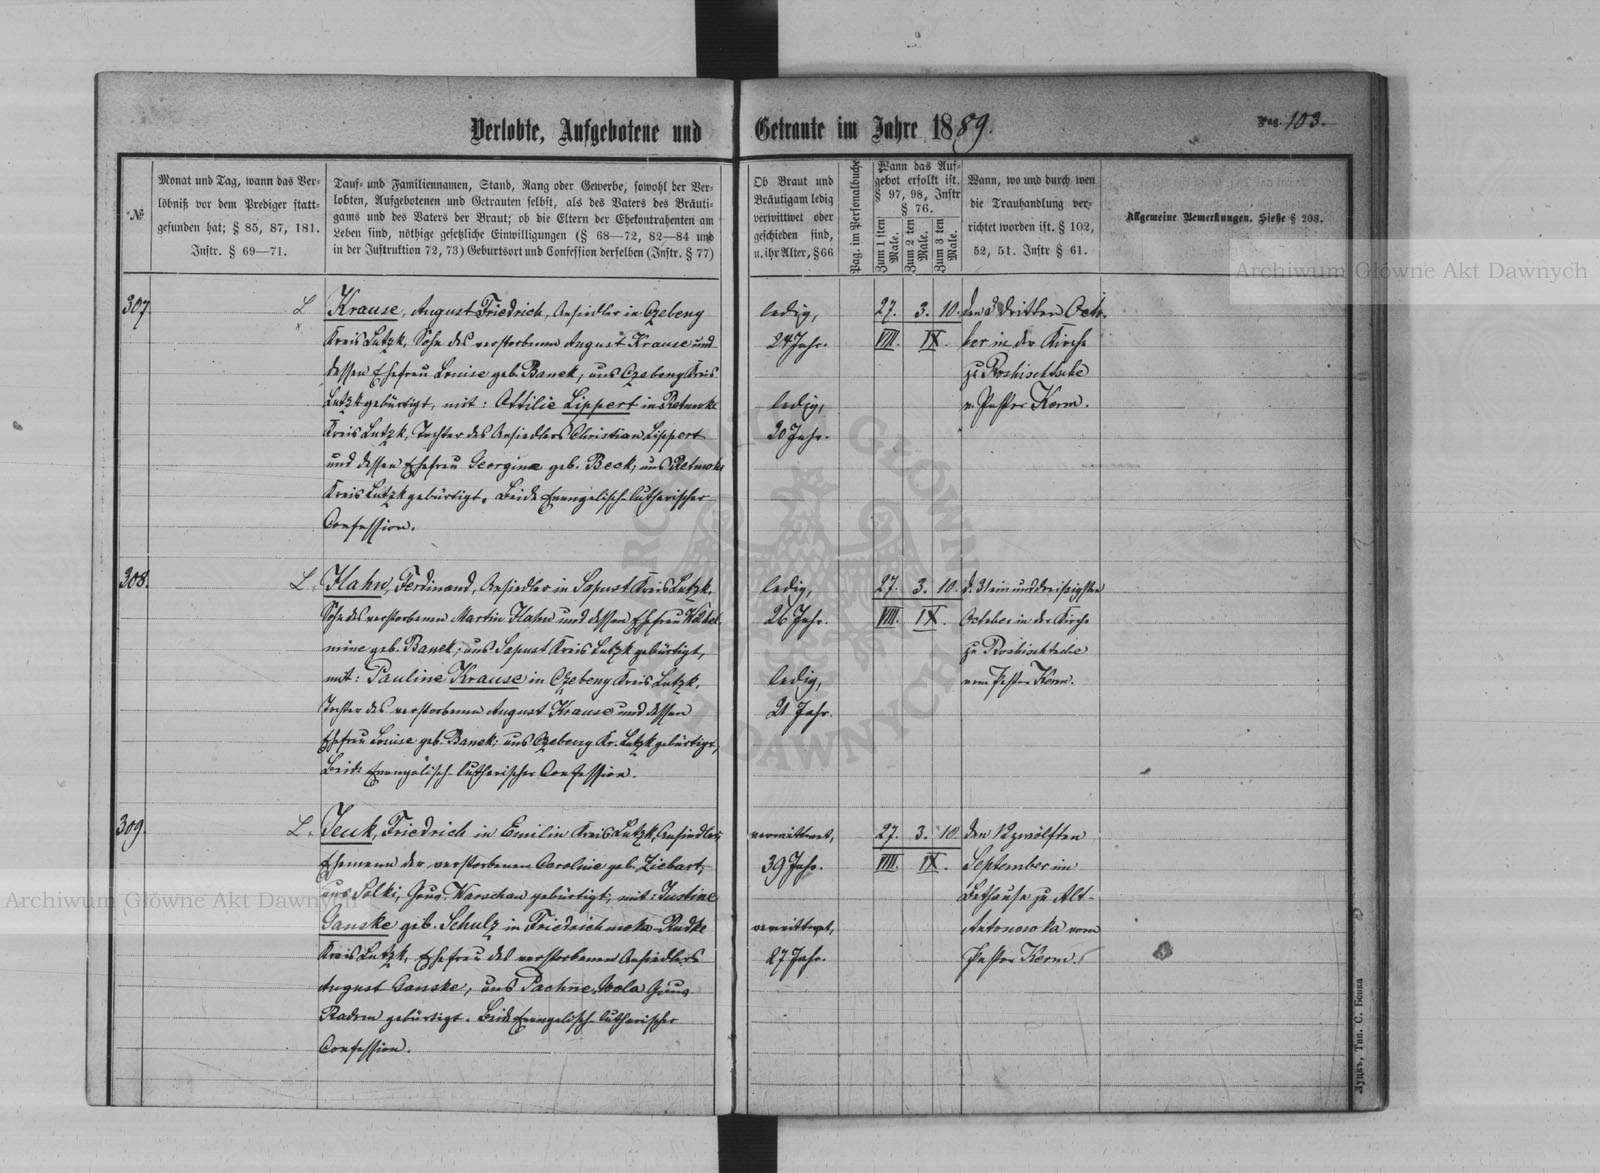 Verlobte, Aufgebotene und Getraute im Jahre 1889. Pag. 103.
№
Monat und Tag, wann das Ver-
löbniß vor dem Prediger statt-
gefunden hat; § 85, 87, 181.
Instr. § 69—71.
Tauf- und Familiennamen, Stand, Rang oder Gewerbe, sowohl der Ver-
lobten, Aufgebotenen und Getrauten selbst, als des Vaters des Bräuti-
gams und des Vaters der Braut; ob die Eltern der Ehekontrahenten am
Leben sind, nöthige gesetzliche Einwilligungen (§ 68—72, 82—84 und
in der Instruktion 72, 73) Geburtsort und Confession derselben (Instr. § 77)
Ob Braut und
Bräutigam ledig
verwittwet oder
geschieden sind,
u. ihr Alter, §66
Pag. im Personalbuche
Wann das Auf-
gebot erfolgt ist.
§ 97, 98, Instr
§ 76.
Zum 1 sten Male.
Zum 2 ten Male.
Zum 3 ten Male.
Wann, wo und durch wen
die Trauhandlung ver-
richtet worden ist. § 102,
52, 51. Instr § 61.
Allgemeine Bemerkungen. Siehe § 208.
307.
L
x
Krause, August Friedrich, Ansiedler in Czebeny
Kreis Lutzk, Sohn des verstorbenen August Krause und
dessen Ehefrau Louise geb. Banek, aus Czebeny Kreis
Lutzk gebürtigt, mit: Ottilie Lippert in
Kreis Lutzk, Tochter des Ansiedlers Christian Lippert
und dessen Ehefrau Georgine geb. Beck, aus
Kreis Lutzk gebürtigt. Beide Evangelisch-lutherischer
Confession.
ledig,
24 Jahr.
ledig,
20 Jahr.
27. 3. 10.
VIII. IX.
den 3 dritten Octo-
ber in der Kirche
zu Roshischtsche
v. Pastor Kerm.
308.
L.
Hahn, Ferdinand, Ansiedler in Sapust Kreis Lutzk,
Sohn des verstorbenen Martin Hahn und dessen Ehefrau
geb. Banek, aus Sapust Kreis Lutzk gebürtigt,
mit: Pauline Krause in Czebeny Kreis Lutzk,
Tochter des verstorbenen August Krause und dessen
Ehefrau Louise geb. Banek, aus Czebeny Kr. Lutzk gebürtigt,
Beide Evangelisch-lutherischer Confession.
ledig,
26 Jahr.
ledig,
21 Jahr.
27. 3. 10.
VIII. IX.
d. 31 einunddreißigsten
October in der Kirche
zu Roshischtsche
vom Pastor Kerm.
309.
L.
Jeuk, Friedrich in Emilin Kreis Lutzk, Ansiedler,
Ehemann der verstorbenen Caroline geb. Ziebart,
aus Solki, Gouv. Warschau gebürtigt, mit: Justine
Ganske geb. Schulz in Friedrichowka-Rudke
Kreis Lutzk, Ehefrau des verstorbenen Ansiedlers
August Ganske, aus Pachne-Wola Gouv.
Radom gebürtigt. Beide Evangelisch-lutherischer
Confession.
verwittwet,
39 Jahr.
verwittwet,
27 Jahr.
27. 3. 10.
VIII. IX.
den 12 zwölften
September im
Bethause zu Alt-
Antonowka vom
Pastor Kerm.
Луцкъ, Тип. С. Бонка
Archiwum Główne Akt Dawnych
Archiwum Główne Akt Dawnych